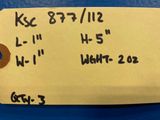 KSC 877/112
L-1" H-5"
W-1" WGHT-2oz
QTY-3